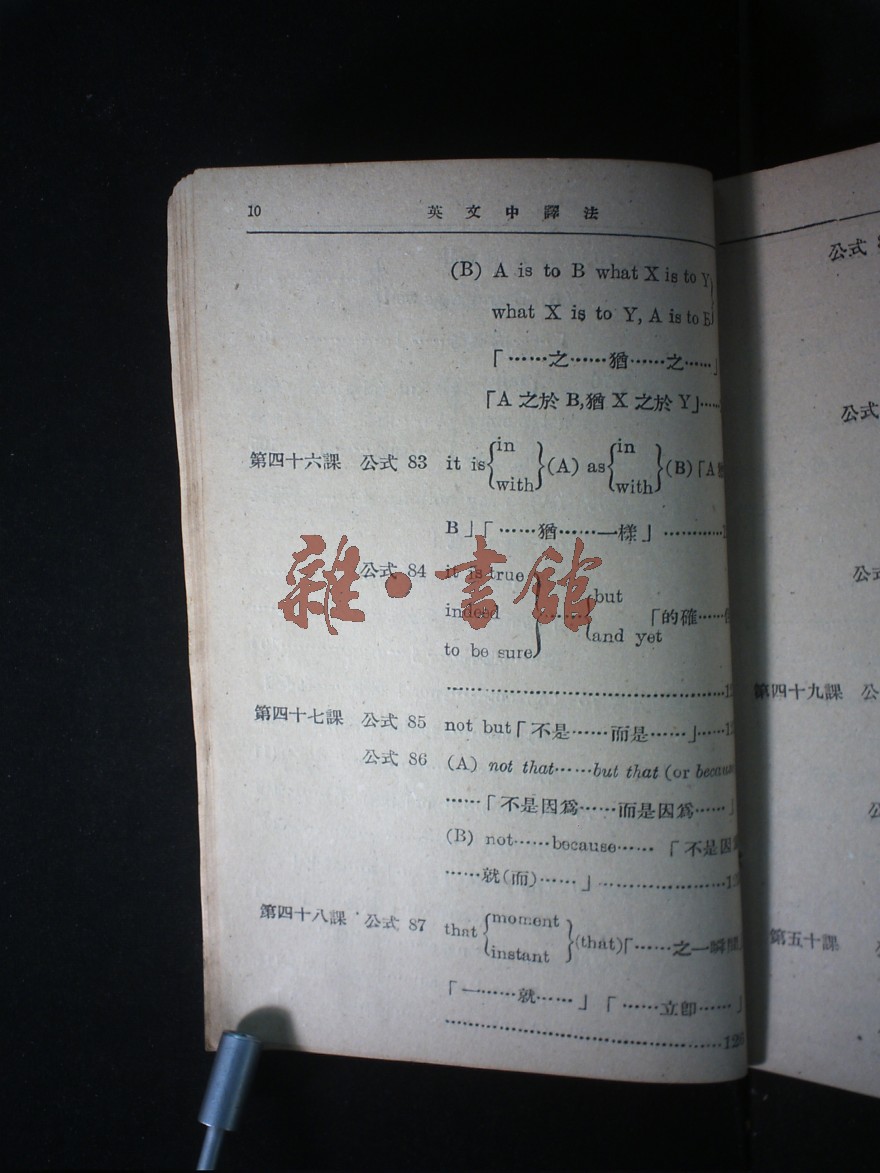 10
英文中譯法
(B) A is to B what X is to Y
what X is to Y, A is to B
「……之……猶……之……」
「A 之於 B,猶 X 之於 Y」……
第四十六課 公式 83 it is {in with} (A) as {in with} (B)「A
B」「……猶……一樣」…………
公式 84 it is true
indeed ……{but and yet} 「的確……
to be sure
第四十七課 公式 85 not but「不是……而是……」……
公式 86 (A) not that……but that (or because
……「不是因爲……而是因爲……」
(B) not……because……「不是因爲
……就(而)……」……………………
第四十八課 公式 87 that {moment instant} (that)「……之一瞬間」
「一……就……」「……立卽……」
…………………………………………126
雜·書館
公式
公式
公式
第四十九課 公
公
第五十課